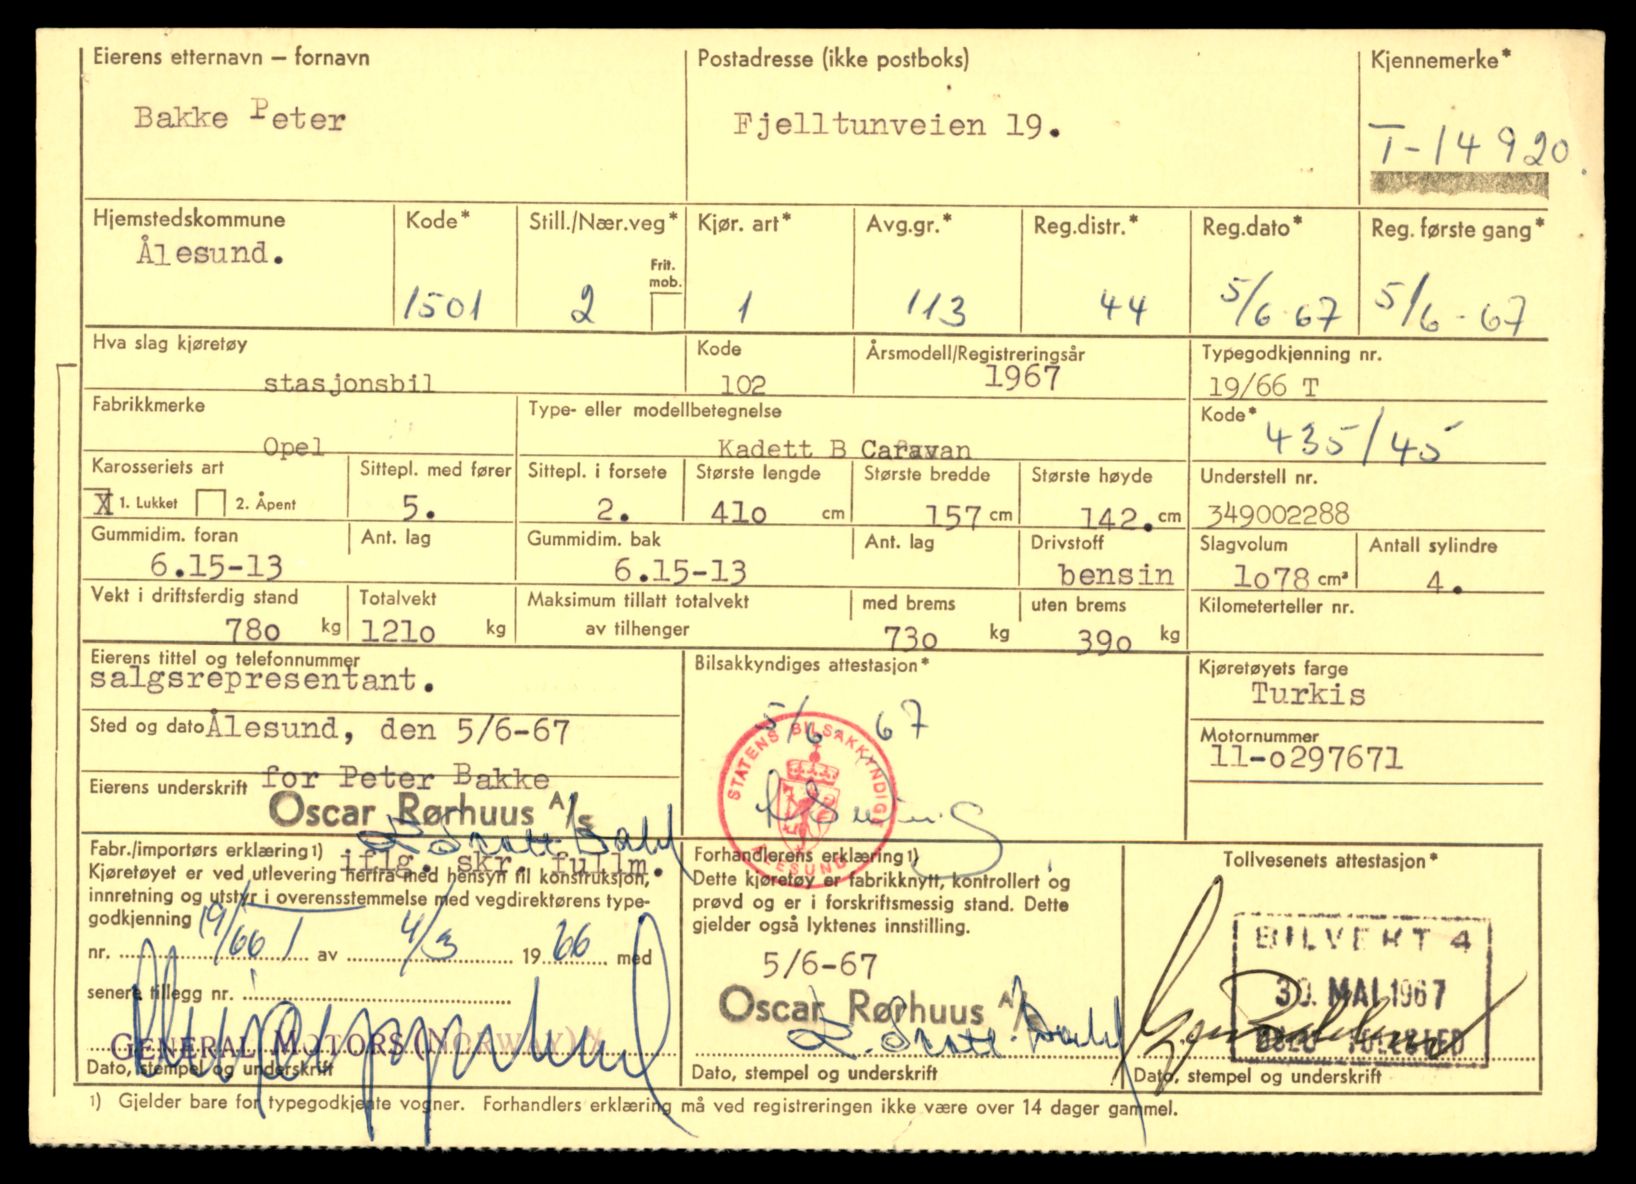 Eierens etternavn – fornavn
Bakke Peter
Postadresse (ikke postboks)
Fjelltunveien 19.
Kjennemerke*
T-14920
Hjemstedskommune
Ålesund.
Kode*
1501
Still./Nær.veg*
2
Frit. mob.
Kjør. art*
1
Avg.gr.*
113
Reg.distr.*
44
Reg.dato*
5/6 67
Reg. første gang*
5/6 - 67
Hva slag kjøretøy
stasjonsbil
Kode
102
Årsmodell/Registreringsår
1967
Typegodkjenning nr.
19/66 T
Fabrikkmerke
Opel
Type- eller modellbetegnelse
Kadett B Caravan
Kode*
435/45
Karosseriets art
X 1. Lukket 2. Åpent
Sittepl. med fører
5.
Sittepl. i forsete
2.
Største lengde
41o cm
Største bredde
157 cm
Største høyde
142. cm
Understell nr.
349002288
Gummidim. foran
6.15-13
Ant. lag
Gummidim. bak
6.15-13
Ant. lag
Drivstoff
bensin
Slagvolum
1o78 cm³
Antall sylindre
4.
Vekt i driftsferdig stand
78o kg
Totalvekt
121o kg
Maksimum tillatt totalvekt
av tilhenger
med brems
73o kg
uten brems
39o kg
Kilometerteller nr.
Eierens tittel og telefonnummer
salgsrepresentant.
Bilsakkyndiges attestasjon*
5/6 67
STATENS BILSAKKYNDIGE
ÅLESUND
Kjøretøyets farge
Turkis
Sted og dato Ålesund, den 5/6-67
Motornummer
11-o297671
Eierens underskrift for Peter Bakke
Oscar Rørhuus A/S
iflg. skr. fullm.
Fabr./importørs erklæring 1)
Kjøretøyet er ved utlevering herfra med hensyn til konstruksjon,
innretning og utstyr i overensstemmelse med vegdirektørens type-
godkjenning
nr. 19/66 T av 4/3 1966 med
senere tillegg nr.
GENERAL MOTORS (NORWAY) A/S
Dato, stempel og underskrift
Forhandlerens erklæring 1)
Dette kjøretøy er fabrikknytt, kontrollert og
prøvd og er i forskriftsmessig stand. Dette
gjelder også lyktenes innstilling.
5/6-67
Oscar Rørhuus A/S
Dato, stempel og underskrift
Tollvesenets attestasjon*
BILVERT 4
30. MAI 1967
OSLO TOLLSTED
Dato, stempel og underskrift
1) Gjelder bare for typegodkjente vogner. Forhandlers erklæring må ved registreringen ikke være over 14 dager gammel.